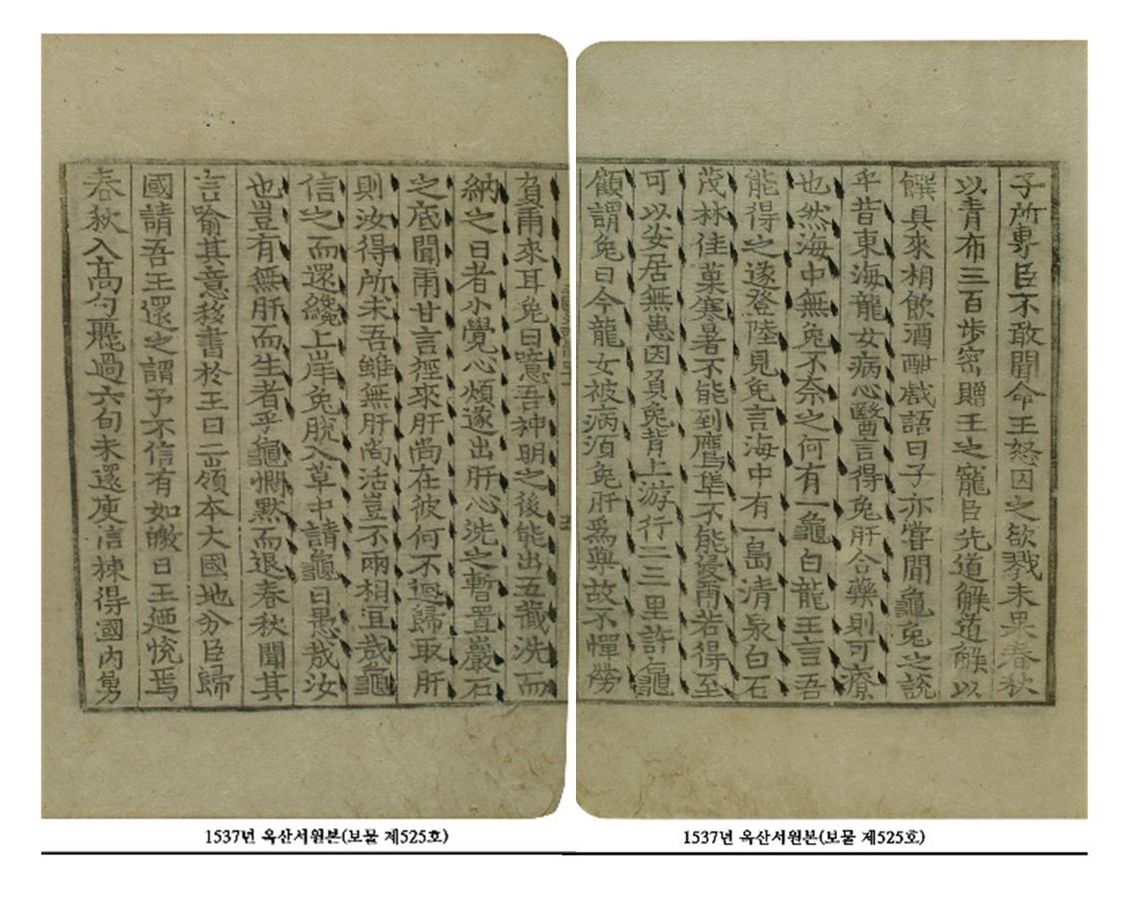 子所專臣不敢聞命王怒囚之欲戮未果春秋
以青布三百步密贈王之寵臣先道解道解以
饌具來相飮酒酣戱語曰子亦嘗聞龜兔之說
乎昔東海龍女病心醫言得兔肝合藥則可療
也然海中無兔不奈之何有一龜白龍王言吾
能得之遂登陸見兔言海中有一島清泉白石
茂林佳菓寒暑不能到鷹隼不能侵爾若得至
可以安居無患因負兔背上游行二三里許龜
顧謂兔曰今龍女被病湏兔肝爲藥故不憚勞
負爾來耳兔曰噫吾神明之後能出五藏洗而
納之日者小覺心煩遂出肝心洗之暫置巖石
之底聞爾甘言徑來肝尚在彼何不廻歸取肝
則汝得所求吾雖無肝尚活豈不兩相宜哉龜
信之而還纔上岸兔脫入草中請龜曰愚哉汝
也豈有無肝而生者乎龜憫默而退春秋聞其
言喻其意移書於王曰二嶺本大國地分臣歸
國請吾王還之謂予不信有如皦日王廼恱焉
春秋入高勾麗過六旬未還庾信揀得國内勇
1537년 옥산서원본(보물 제525호)
1537년 옥산서원본(보물 제525호)